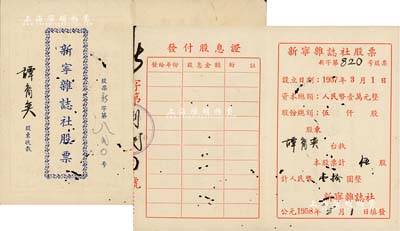 新寧雜誌社股票
股票新字第八弍〇號
譚
股東收執
發付股息證
發給年份
股息金額
附註
新寧雜誌社股票
新字第820號股票
設立日期:1957年3月1日
資本總額:人民幣壹萬元整
股份總額:伍仟股
股東
譚
台執
本股票計伍股
計人民幣壹拾圓整
新寧雜誌社
公元1958年3月1日填發